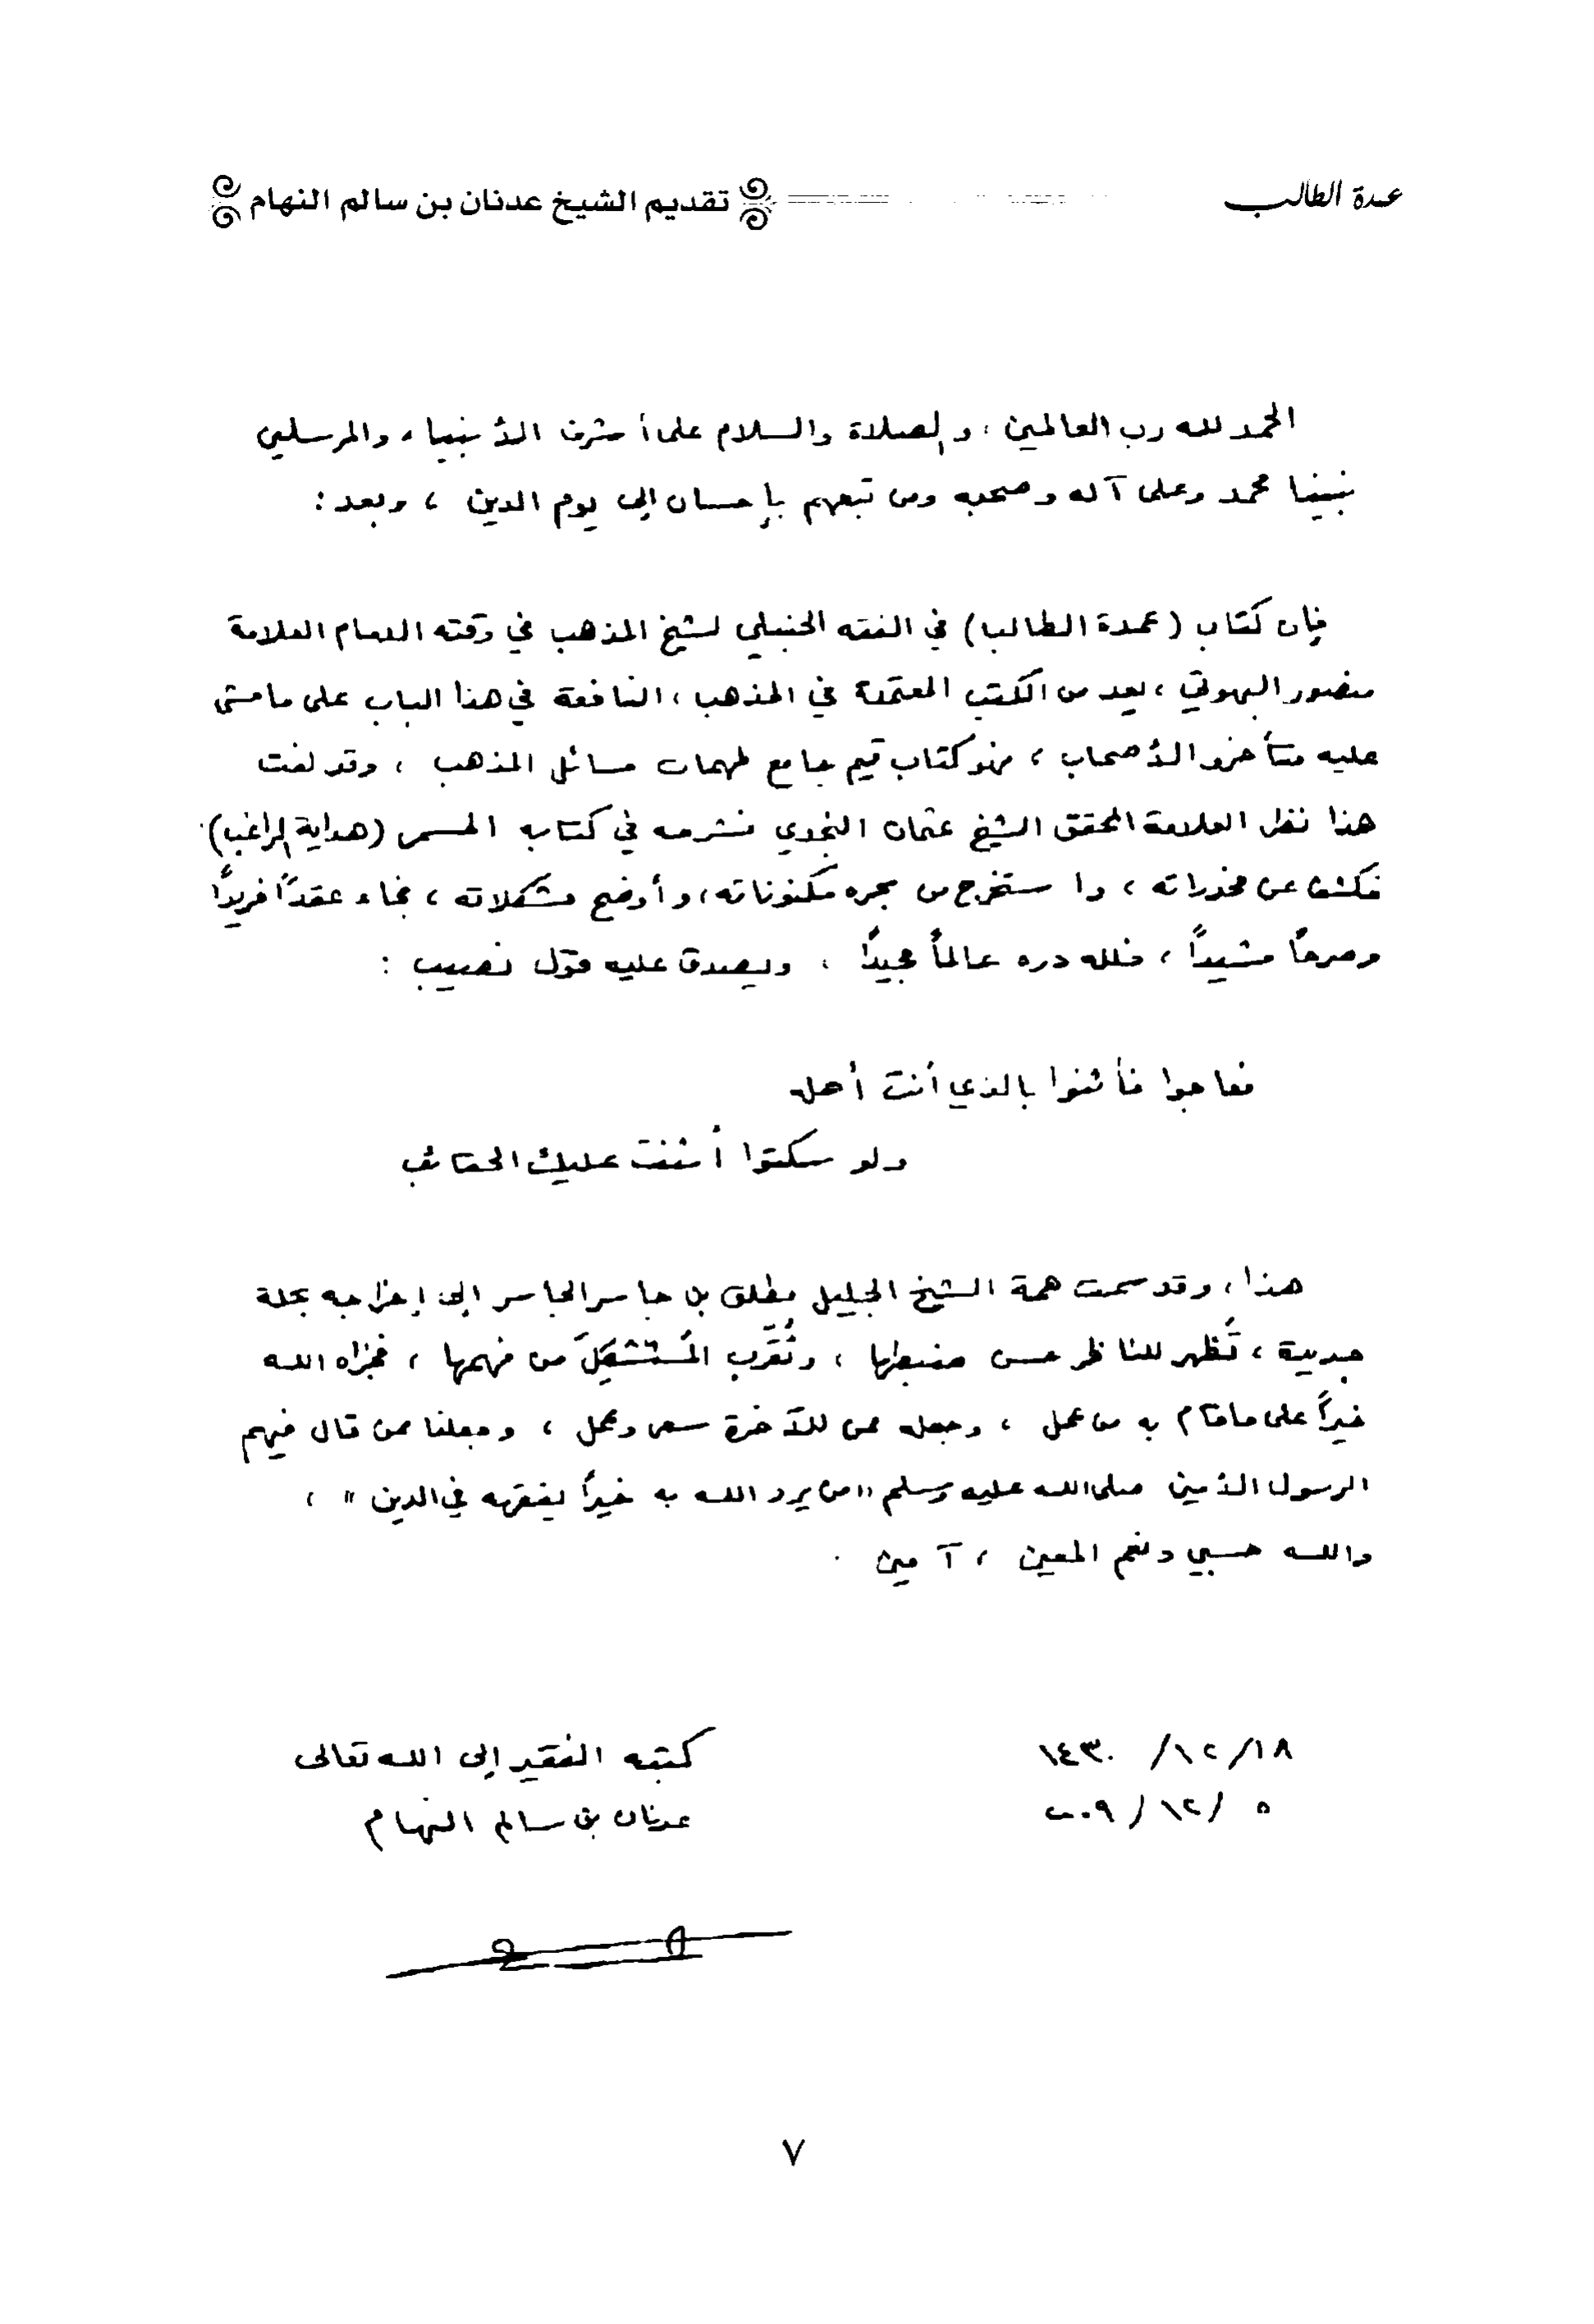 عمدة الطالب
تقديم الشيخ عدنان بن سالم النهام
الحمد لله رب العالمين ، والصلاة والسلام على أشرف الأنبياء والمرسلين
نبينا محمد وعلى آله وصحبه ومن تبعهم بإحسان إلى يوم الدين ، وبعد :
فإن كتاب (عمدة الطالب) في الفقه الحنبلي لشيخ المذهب في وقته الإمام العلامة
منصور البهوتي ، يعد من الكتب المعتمدة في المذهب ، النافعة في هذا الباب على ما مشى
عليه متأخرو الأصحاب ، فهو كتاب قيم جامع لمهمات مسائل المذهب ، وقد لفت
هذا نظر العلامة المحقق الشيخ عثمان النجدي فشرحه في كتابه المسمى (هداية الراغب)
فكشف عن مخدراته ، واستخرج من بحره مكنوناته ، وأوضح مشكلاته ، فجاء عقدًا فريدًا
وصرحًا مشيدًا ، فلله دره عالمًا مجيدًا ، ويصدق عليه قول نصيب :
فعاجوا فأثنوا بالذي أنت أهله
ولو سكتوا أثنت عليك الحقائب
هذا ، وقد سمت همة الشيخ الجليل مطلق بن جاسر الجاسر إلى إخراجه بحلة
جديدة ، تُظهر للناظر حسن ضبطها ، وتُقَرِّب المُسْتشكِلَ من فهمها ، فجزاه الله
خيرًا على ما قام به من عمل ، وجعله ممن للآخرة سعى وعمل ، وجعلنا ممن قال فيهم
الرسول الأمين صلى الله عليه وسلم "من يرد الله به خيرًا يفقهه في الدين" ،
والله حسبي ونعم المعين ، آمين .
١٨/ ١٢/ ١٤٣٠
كتبه الفقير إلى الله تعالى
٥ /١٢/ ٢٠٠٩
عدنان بن سالم النهام
٧